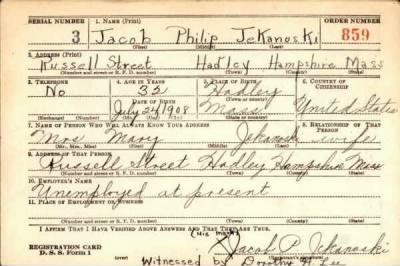 SERIAL NUMBER 1. NAME (Print) ORDER NUMBER
3 Jacob Philip Jekanoski 859
(First) (Middle) (Last)
2. ADDRESS (Print)
Russell Street Hadley Hampshire Mass
(Number and street or R. F. D. number) (Town) (County) (State)
3. TELEPHONE 4. AGE IN YEARS 5. PLACE OF BIRTH 6. COUNTRY OF CITIZENSHIP
No 32 Hadley
DATE OF BIRTH (Town or county)
July 24 1908 Mass United States
7. NAME OF PERSON WHO WILL ALWAYS KNOW YOUR ADDRESS 8. RELATIONSHIP OF THAT PERSON
Mrs Mary Jekanoski wife
(Mr., Mrs., Miss) (First) (Middle) (Last)
9. ADDRESS OF THAT PERSON
Russell Street Hadley Hampshire Mass
(Number and street or R. F. D. number) (Town) (County) (State)
10. EMPLOYER'S NAME
Unemployed at present
11. PLACE OF EMPLOYMENT OR BUSINESS
(Number and street or R. F. D. number) (Town) (County) (State)
I AFFIRM THAT I HAVE VERIFIED ABOVE ANSWERS AND THAT THEY ARE TRUE.
(His Mark)
REGISTRATION CARD X Jacob P. Jekanoski
D. S. S. Form 1 (Registrant's signature)
Witnessed by Dorothy H. Lee